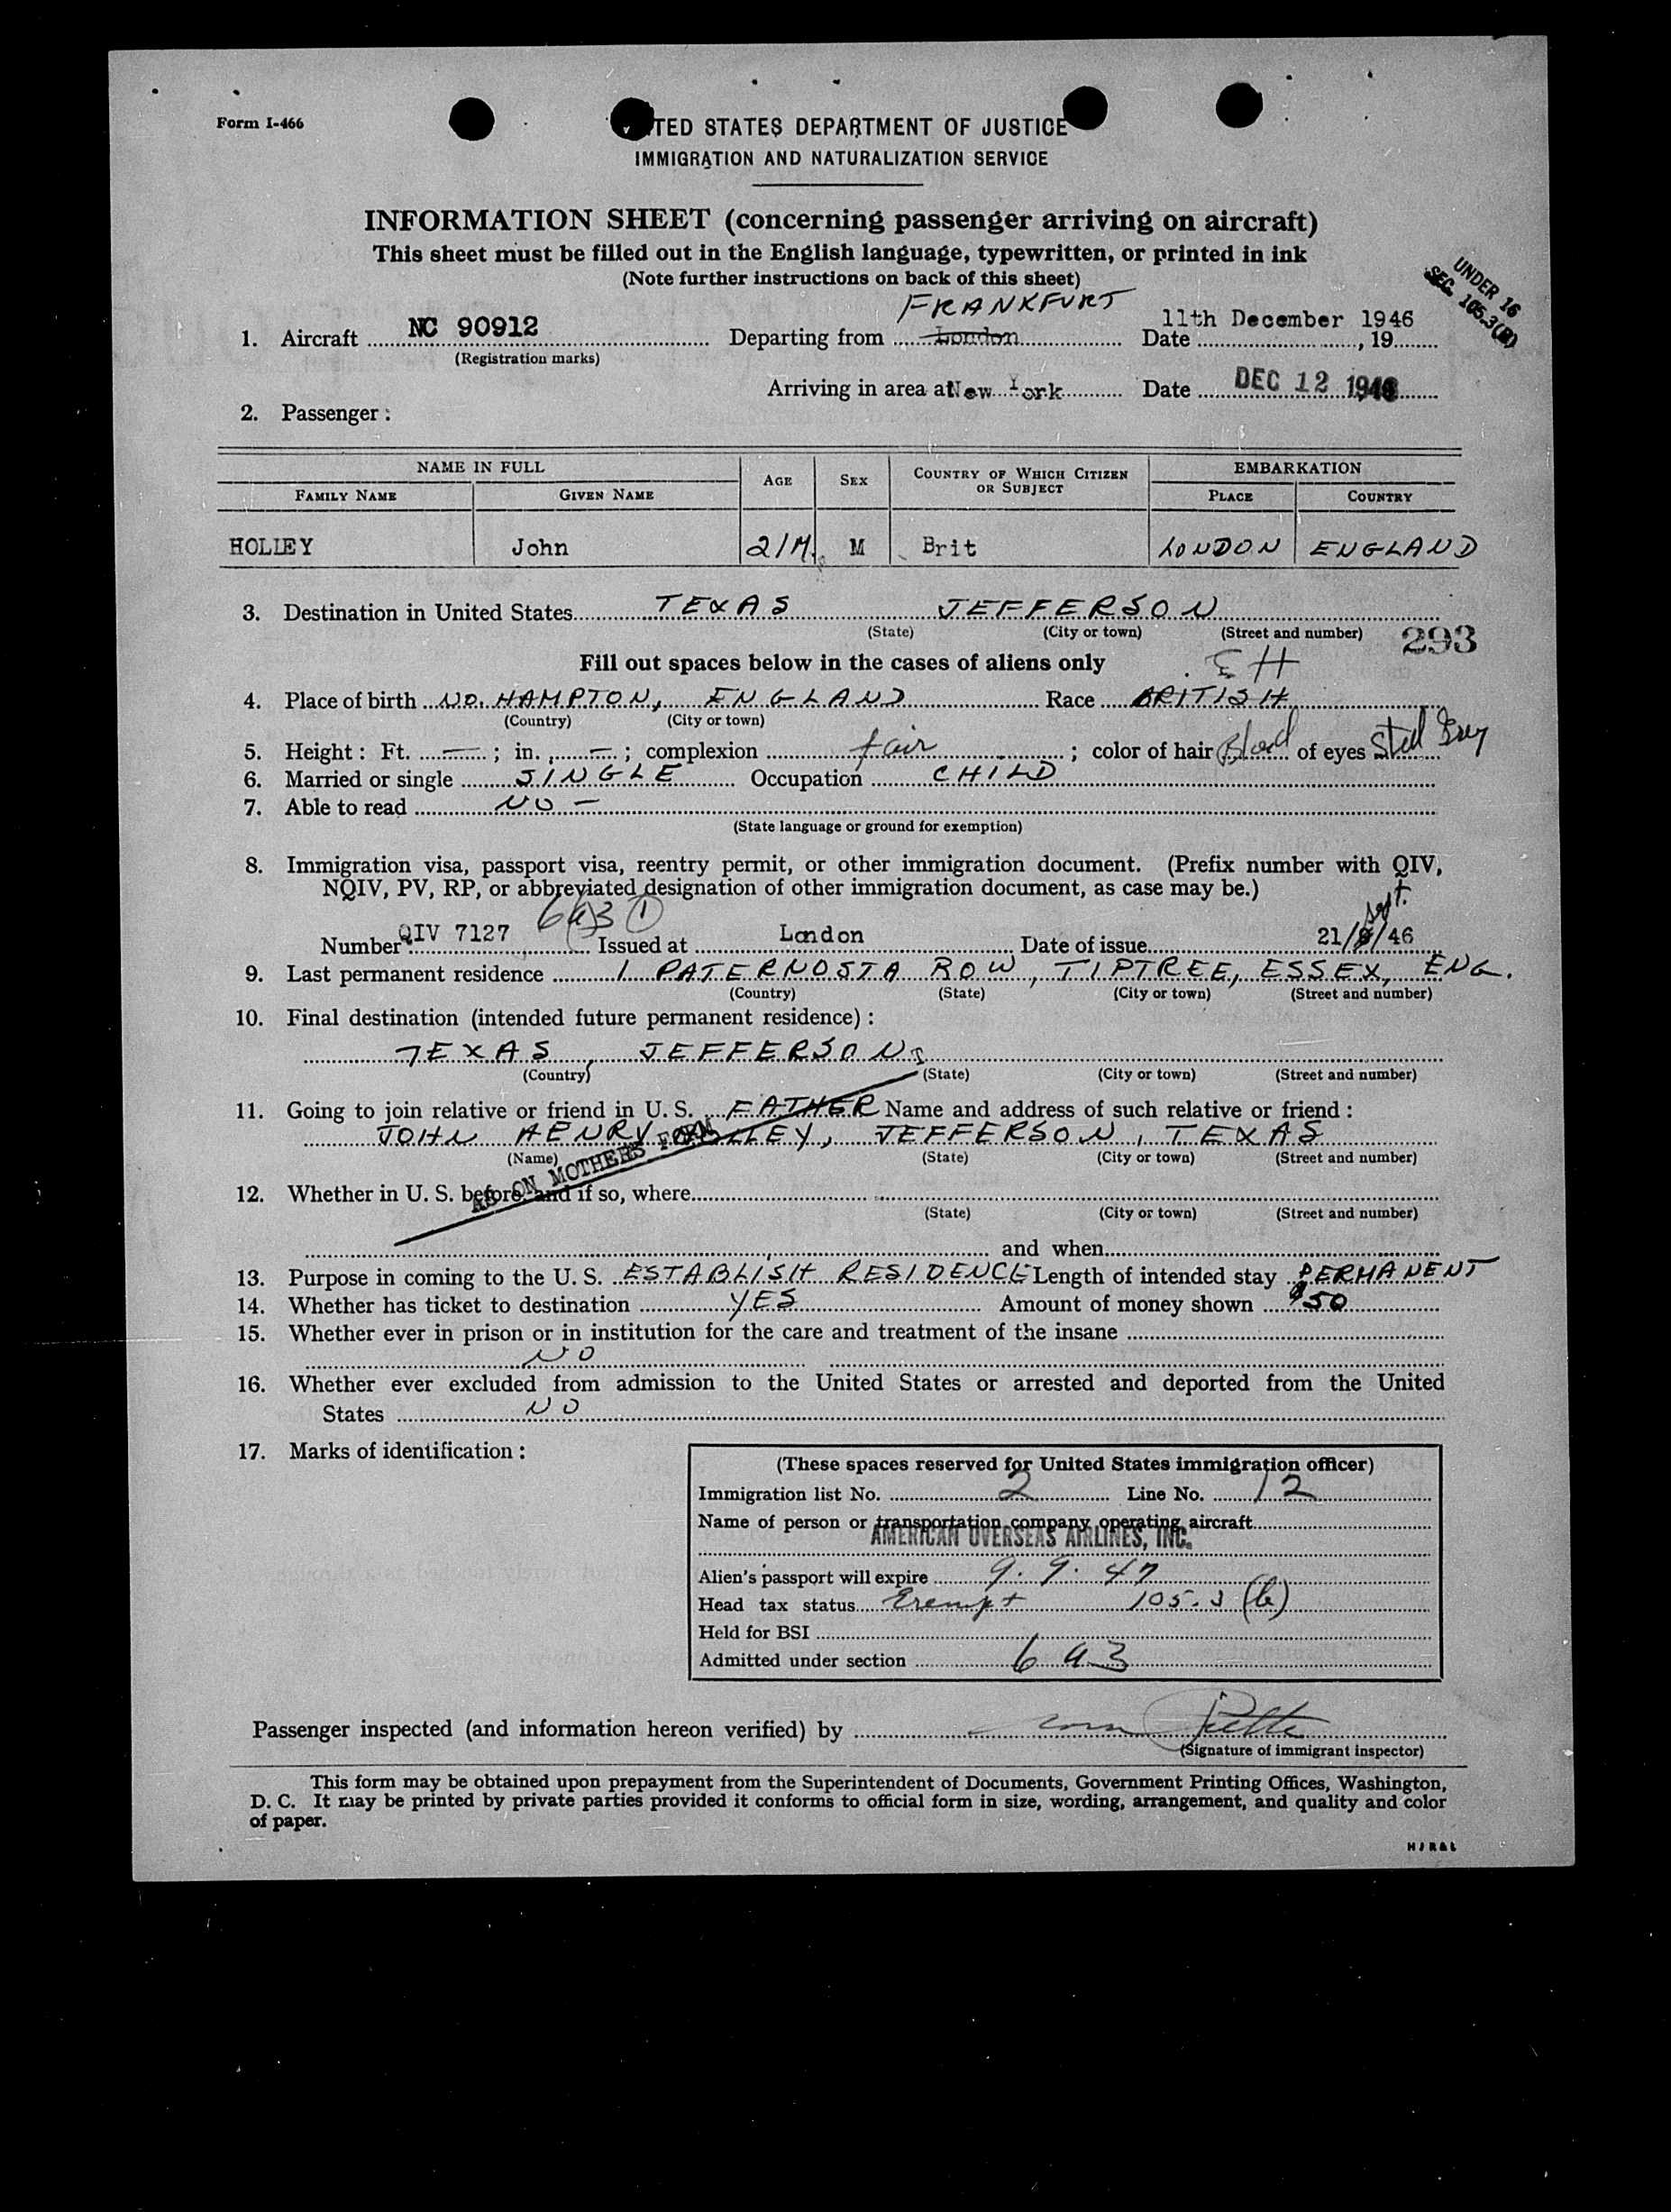 Form I-466
TED STATES DEPARTMENT OF JUSTICE
IMMIGRATION AND NATURALIZATION SERVICE
INFORMATION SHEET (concerning passenger arriving on aircraft)
This sheet must be filled out in the English language, typewritten, or printed in ink
(Note further instructions on back of this sheet)
UNDER 16
SEC. 105.3(B)
FRANKFURT
1. Aircraft NC 90912 Departing from London Date 11th December 1946, 19
(Registration marks)
Arriving in area at New York Date DEC 12 1946
2. Passenger:
NAME IN FULL AGE SEX COUNTRY OF WHICH CITIZEN OR SUBJECT EMBARKATION
FAMILY NAME GIVEN NAME PLACE COUNTRY
HOLLEY John 21M. M Brit LONDON ENGLAND
3. Destination in United States TEXAS JEFFERSON
(State) (City or town) (Street and number) 293
Fill out spaces below in the cases of aliens only
4. Place of birth NO. HAMPTON, ENGLAND Race BRITISH
(Country) (City or town)
5. Height: Ft. — ; in. — ; complexion fair ; color of hair Blond of eyes Steel Grey
6. Married or single SINGLE Occupation CHILD
7. Able to read NO –
(State language or ground for exemption)
8. Immigration visa, passport visa, reentry permit, or other immigration document. (Prefix number with QIV,
NQIV, PV, RP, or abbreviated designation of other immigration document, as case may be.)
6a3 1 Sept.
Number QIV 7127 Issued at London Date of issue 21/9/46
9. Last permanent residence 1 PATERNOSTA ROW, TIPTREE, ESSEX, ENG.
(Country) (State) (City or town) (Street and number)
10. Final destination (intended future permanent residence):
TEXAS, JEFFERSON
(Country) (State) (City or town) (Street and number)
11. Going to join relative or friend in U. S. FATHER Name and address of such relative or friend:
JOHN HENRY HOLLEY, JEFFERSON, TEXAS
(Name) (State) (City or town) (Street and number)
AS ON MOTHERS FORM
12. Whether in U. S. before, and if so, where
(State) (City or town) (Street and number)
and when
13. Purpose in coming to the U. S. ESTABLISH RESIDENCE Length of intended stay PERMANENT
14. Whether has ticket to destination YES Amount of money shown $50
15. Whether ever in prison or in institution for the care and treatment of the insane
NO
16. Whether ever excluded from admission to the United States or arrested and deported from the United
States NO
17. Marks of identification:
(These spaces reserved for United States immigration officer)
Immigration list No. 2 Line No. 12
Name of person or transportation company operating aircraft
AMERICAN OVERSEAS AIRLINES, INC.
Alien's passport will expire 9. 9. 47
Head tax status Exempt 105.3 (b)
Held for BSI
Admitted under section 6 a 3
Passenger inspected (and information hereon verified) by
(Signature of immigrant inspector)
This form may be obtained upon prepayment from the Superintendent of Documents, Government Printing Offices, Washington,
D. C. It may be printed by private parties provided it conforms to official form in size, wording, arrangement, and quality and color
of paper.